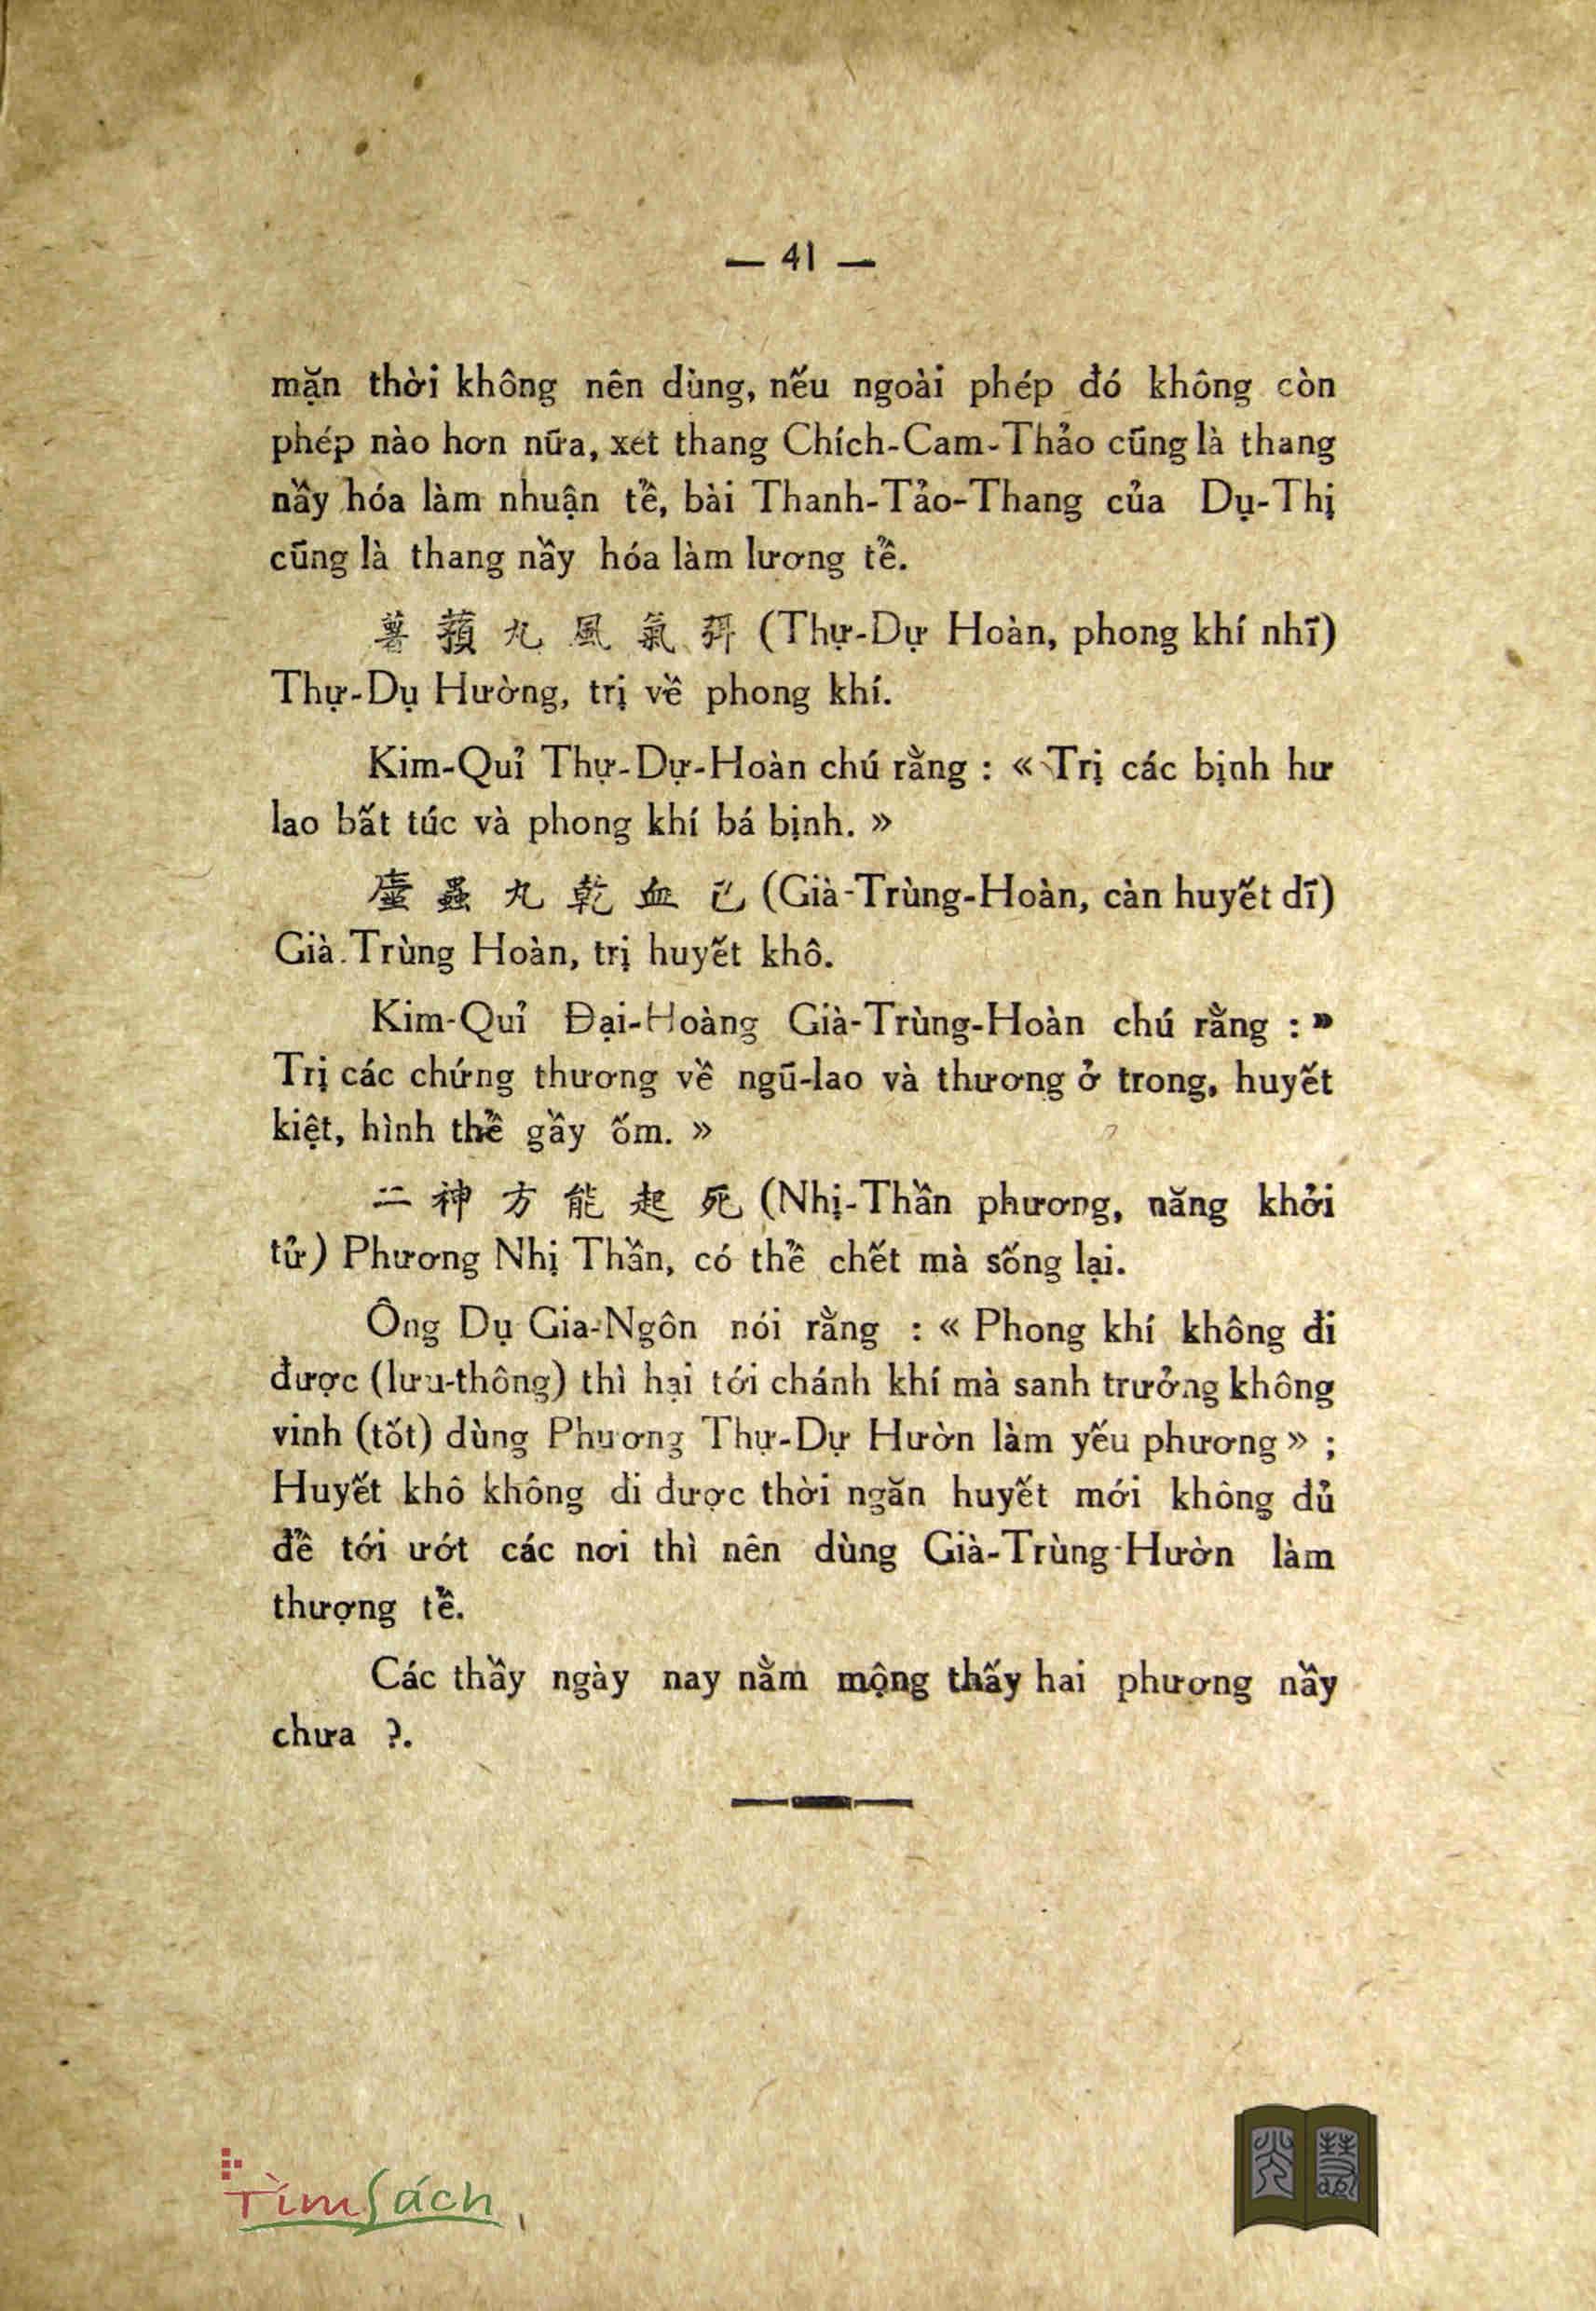 — 41 —
mặn thời không nên dùng, nếu ngoài phép đó không còn
phép nào hơn nữa, xét thang Chích-Cam-Thảo cũng là thang
nầy hóa làm nhuận tề, bài Thanh-Tảo-Thang của Dụ-Thị
cũng là thang nầy hóa làm lương tề.
薯蕷丸風氣弭 (Thự-Dự Hoàn, phong khí nhĩ)
Thự-Dụ Hường, trị về phong khí.
Kim-Quỉ Thự-Dự-Hoàn chú rằng : « Trị các bịnh hư
lao bất túc và phong khí bá bịnh. »
蟲丸乾血已 (Già-Trùng-Hoàn, càn huyết dĩ)
Già-Trùng Hoàn, trị huyết khô.
Kim-Quỉ Đại-Hoàng Già-Trùng-Hoàn chú rằng : »
Trị các chứng thương về ngũ-lao và thương ở trong, huyết
kiệt, hình thể gầy ốm. »
二神方能起死 (Nhị-Thần phương, năng khởi
tử) Phương Nhị Thần, có thể chết mà sống lại.
Ông Dụ Gia-Ngôn nói rằng : « Phong khí không đi
được (lưu-thông) thì hại tới chánh khí mà sanh trưởng không
vinh (tốt) dùng Phương Thự-Dự Hườn làm yếu phương » ;
Huyết khô không đi được thời ngăn huyết mới không đủ
để tới ướt các nơi thì nên dùng Già-Trùng-Hườn làm
thượng tề.
Các thầy ngày nay nằm mộng thấy hai phương nầy
chưa ?.
TìmSách